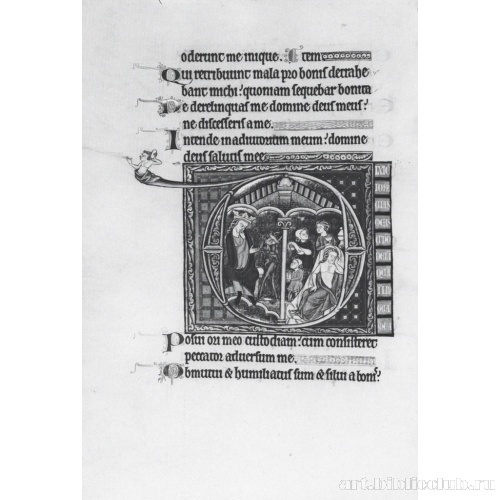 oderunt me inique. Item
Qui retribuunt mala pro bonis detrahe
bant michi: quoniam sequebar bonita
Ne derelinquas me domine deus meus:
ne discesseris a me.
Intende in adiutorium meum: domine
deus salutis mee
Posui ori meo custodiam: cum consisteret
peccator adversum me.
Obmutui & humiliatus sum & silui a bonis:
art.biblioclub.ru